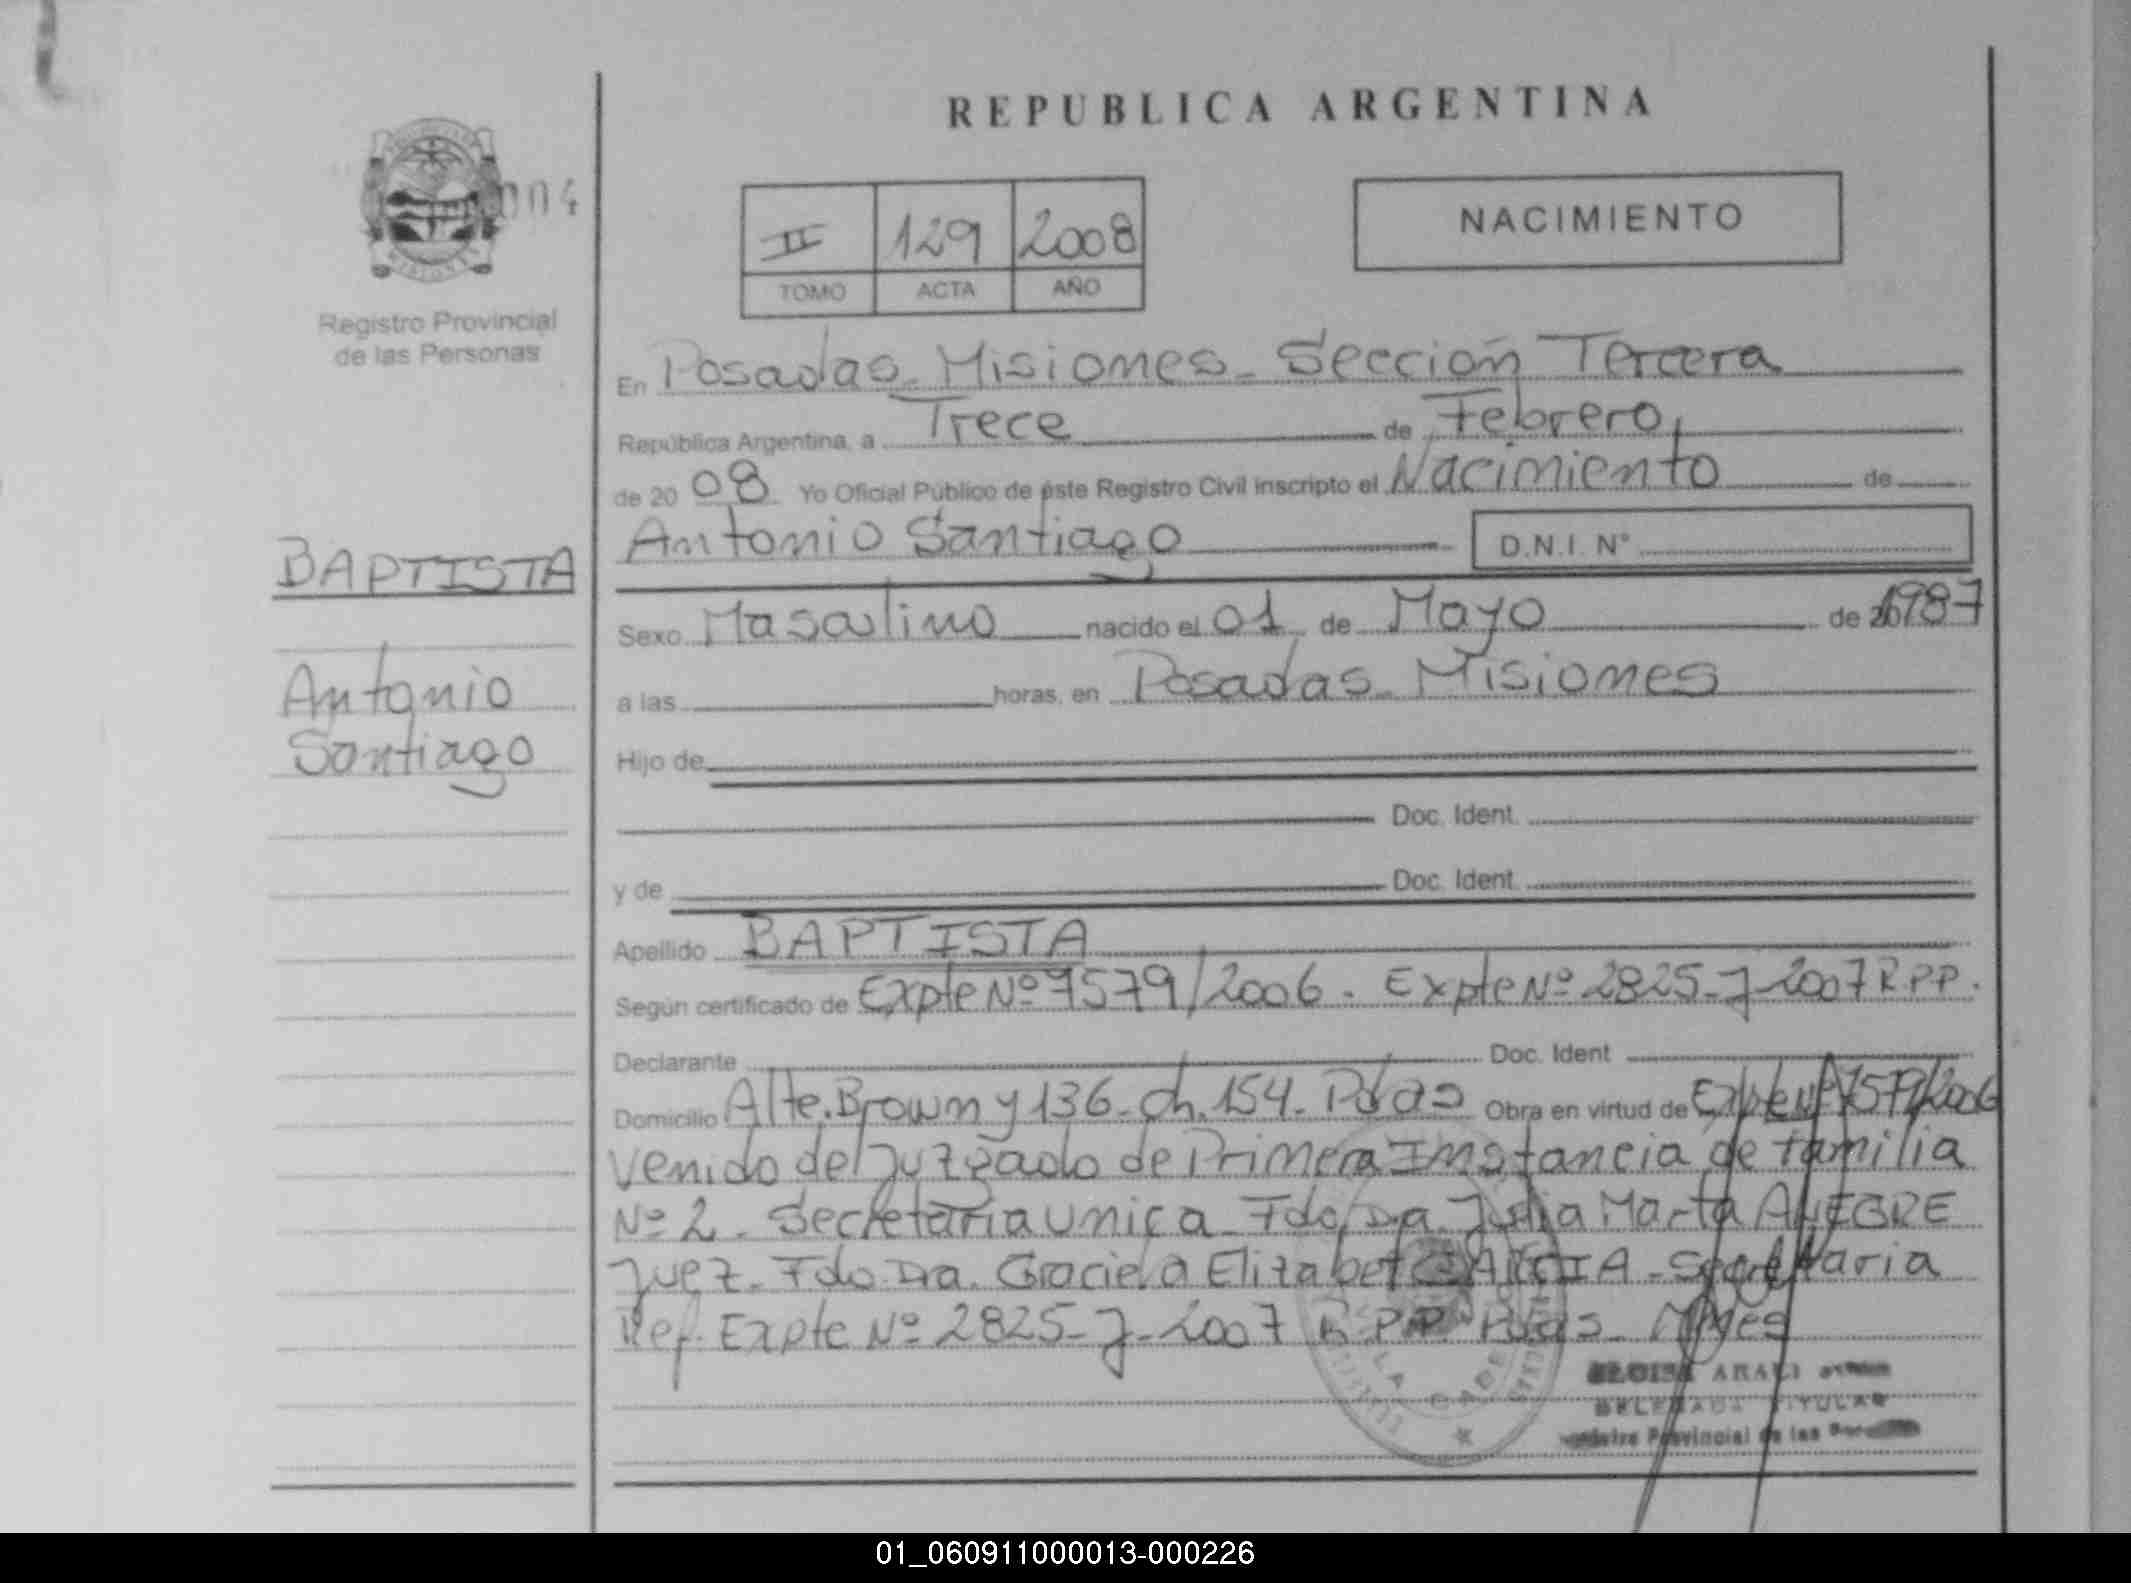 REPUBLICA ARGENTINA
004
Registro Provincial
de las Personas
II 129 2008
TOMO ACTA AÑO
NACIMIENTO
En Posadas - Misiones - Sección Tercera
República Argentina, a Trece de Febrero,
de 2008 Yo Oficial Público de éste Registro Civil inscripto el Nacimiento de
BAPTISTA
Antonio
Santiago
Antonio Santiago D.N.I. N°
Sexo Masculino nacido el 01 de Mayo de 1987
a las horas, en Posadas - Misiones
Hijo de
Doc. Ident.
y de Doc. Ident.
Apellido BAPTISTA
Según certificado de Expte Nº 7579/2006. Expte Nº 2825-J-2007 R.P.P.
Declarante Doc. Ident
Domicilio Alte. Brown y 136 - ch. 154 - Pdas Obra en virtud de Expte Nº 7579/2006
venido del Juzgado de Primera Instancia de familia
Nº 2 - Secretaria Unica - Fdo. Dra. Julia Marta ALEGRE
Juez - Fdo. Dra. Graciela Elizabet GARCIA - Secretaria
Ref. Expte Nº 2825-J-2007 R.P.P. Pdas - Mnes
ELOISA
DELEGADA TITULAR
Registro Provincial de las
01_060911000013-000226